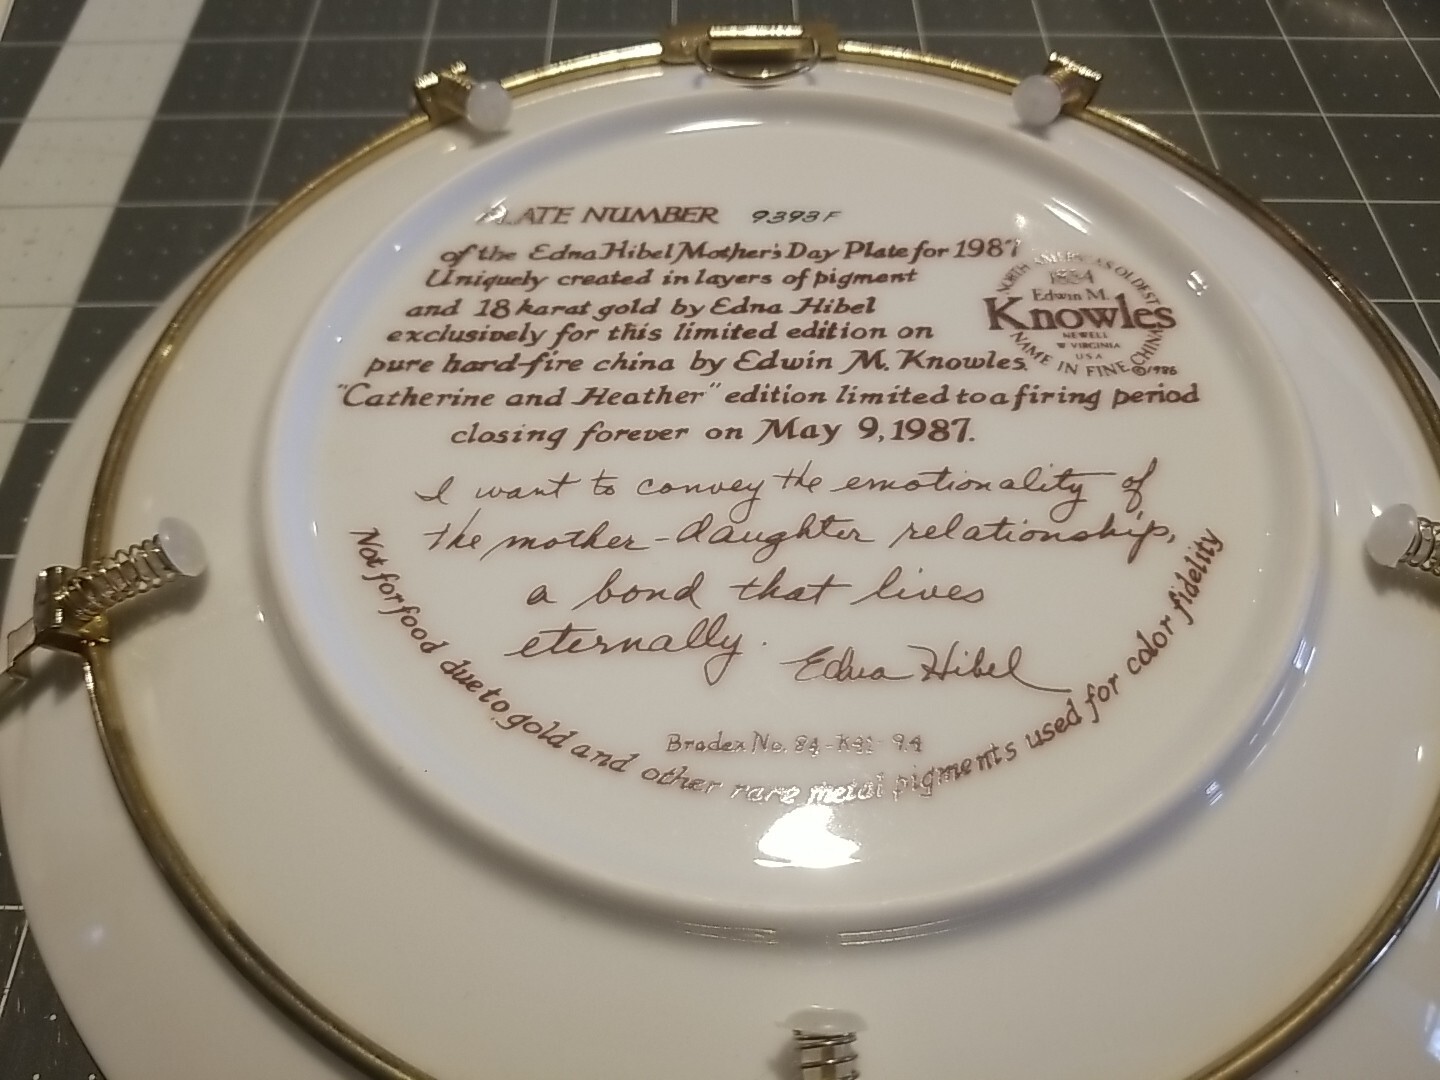 PLATE NUMBER 9393F
of the Edna Hibel Mother's Day Plate for 1987
Uniquely created in layers of pigment
and 18 karat gold by Edna Hibel
exclusively for this limited edition on
pure hard-fire china by Edwin M. Knowles.
"Catherine and Heather" edition limited to a firing period
closing forever on May 9, 1987.
NORTH AMERICAS OLDEST
1854
Edwin M.
Knowles
NEWELL
W VIRGINIA
USA
NAME IN FINE CHINA
©1986
I want to convey the emotionality of
the mother-daughter relationship,
a bond that lives
eternally.
Edna Hibel
Bradex No. 84-K41-9.4
Not for food due to gold and other rare metal pigments used for color fidelity